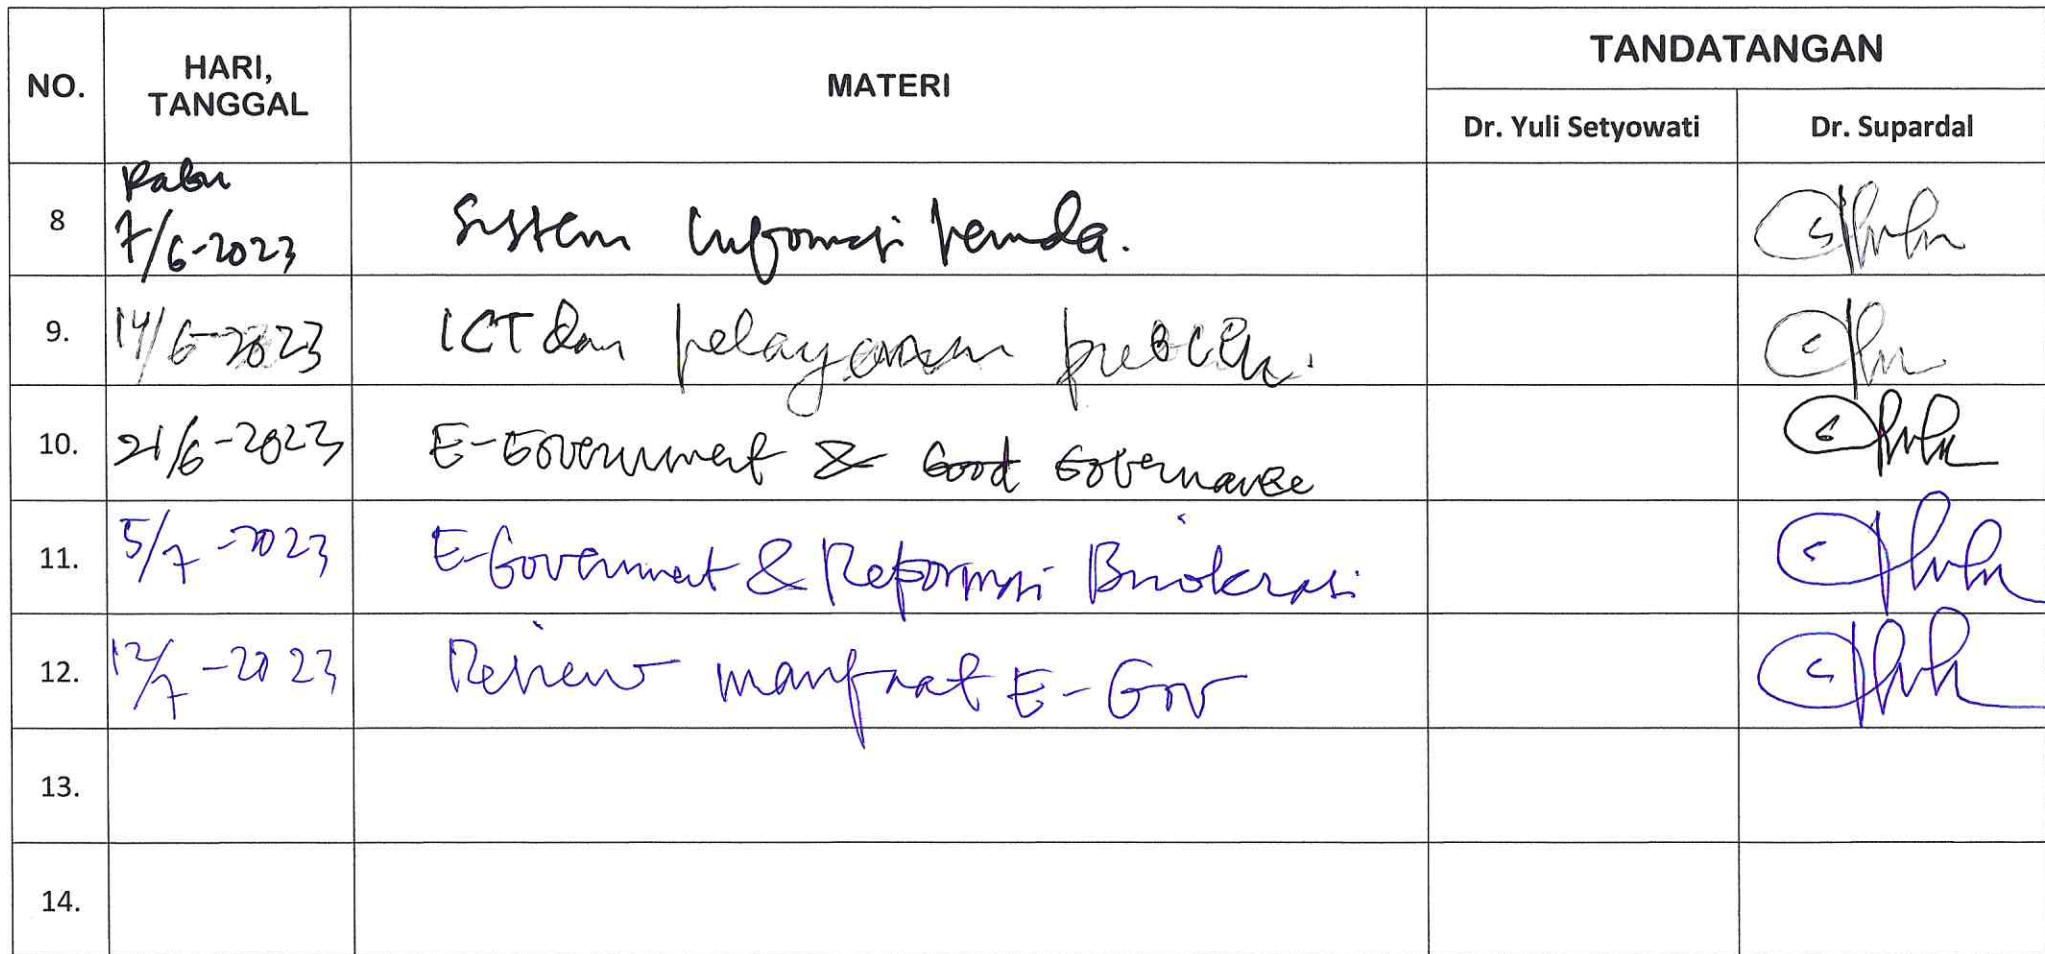 NO. HARI, TANGGAL MATERI TANDATANGAN
Dr. Yuli Setyowati Dr. Supardal
8 Rabu 7/6-2023 Sistem Informasi Pemda.
9. 14/6-2023 ICT dan pelayanan publik.
10. 21/6-2023 E-Government & Good Governance
11. 5/7-2023 E-Government & Reformasi Birokrasi
12. 12/7-2023 Review manfaat E-Gov
13.
14.